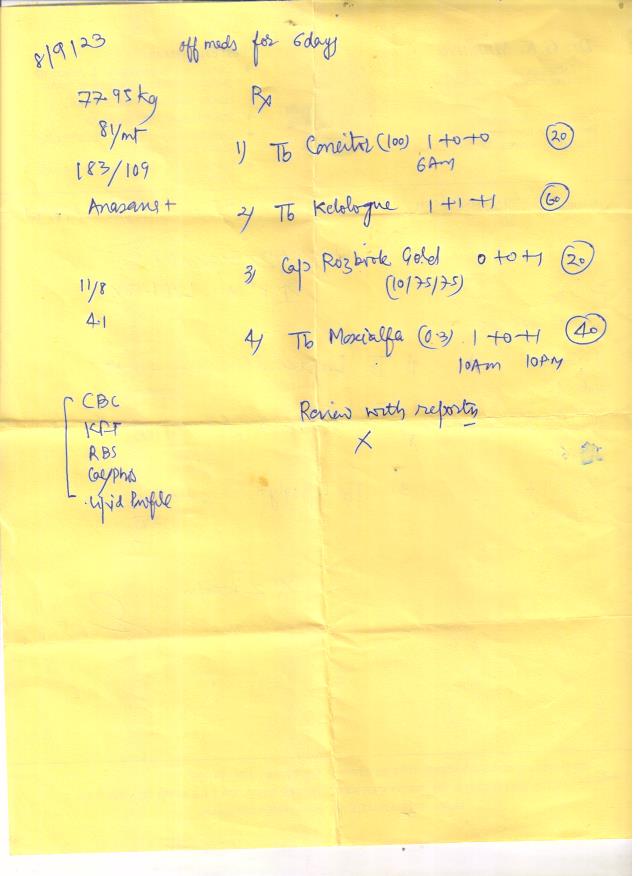 8/9/23
off meds for 6days
77.95kg
81/mt
183/109
11/8
4.1
CBC
KFT
RBS
Cal/Phos
Lipid Profile
Rx
1) Tb (100) 1+0+0 20
6Am
2) Tb Kelologue 1+1+1 60
3) Cap Rozbrok Gold 0+0+1 20
(10/75/75)
4) Tb Moxialfa (0.3) 1+0+1 40
10Am 10PM
Review with reports
X